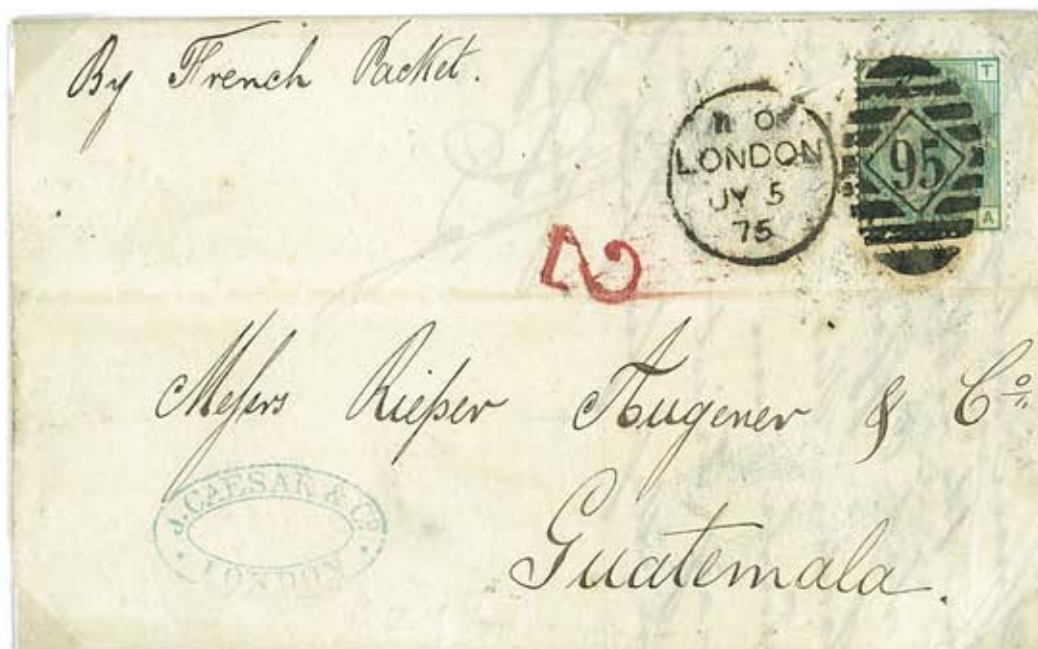 By French Packet.
T
95
A
LONDON
JY 5
75
2
Messrs Riesser Augener & Co
Guatemala.
J. CAESAR & Co.
LONDON